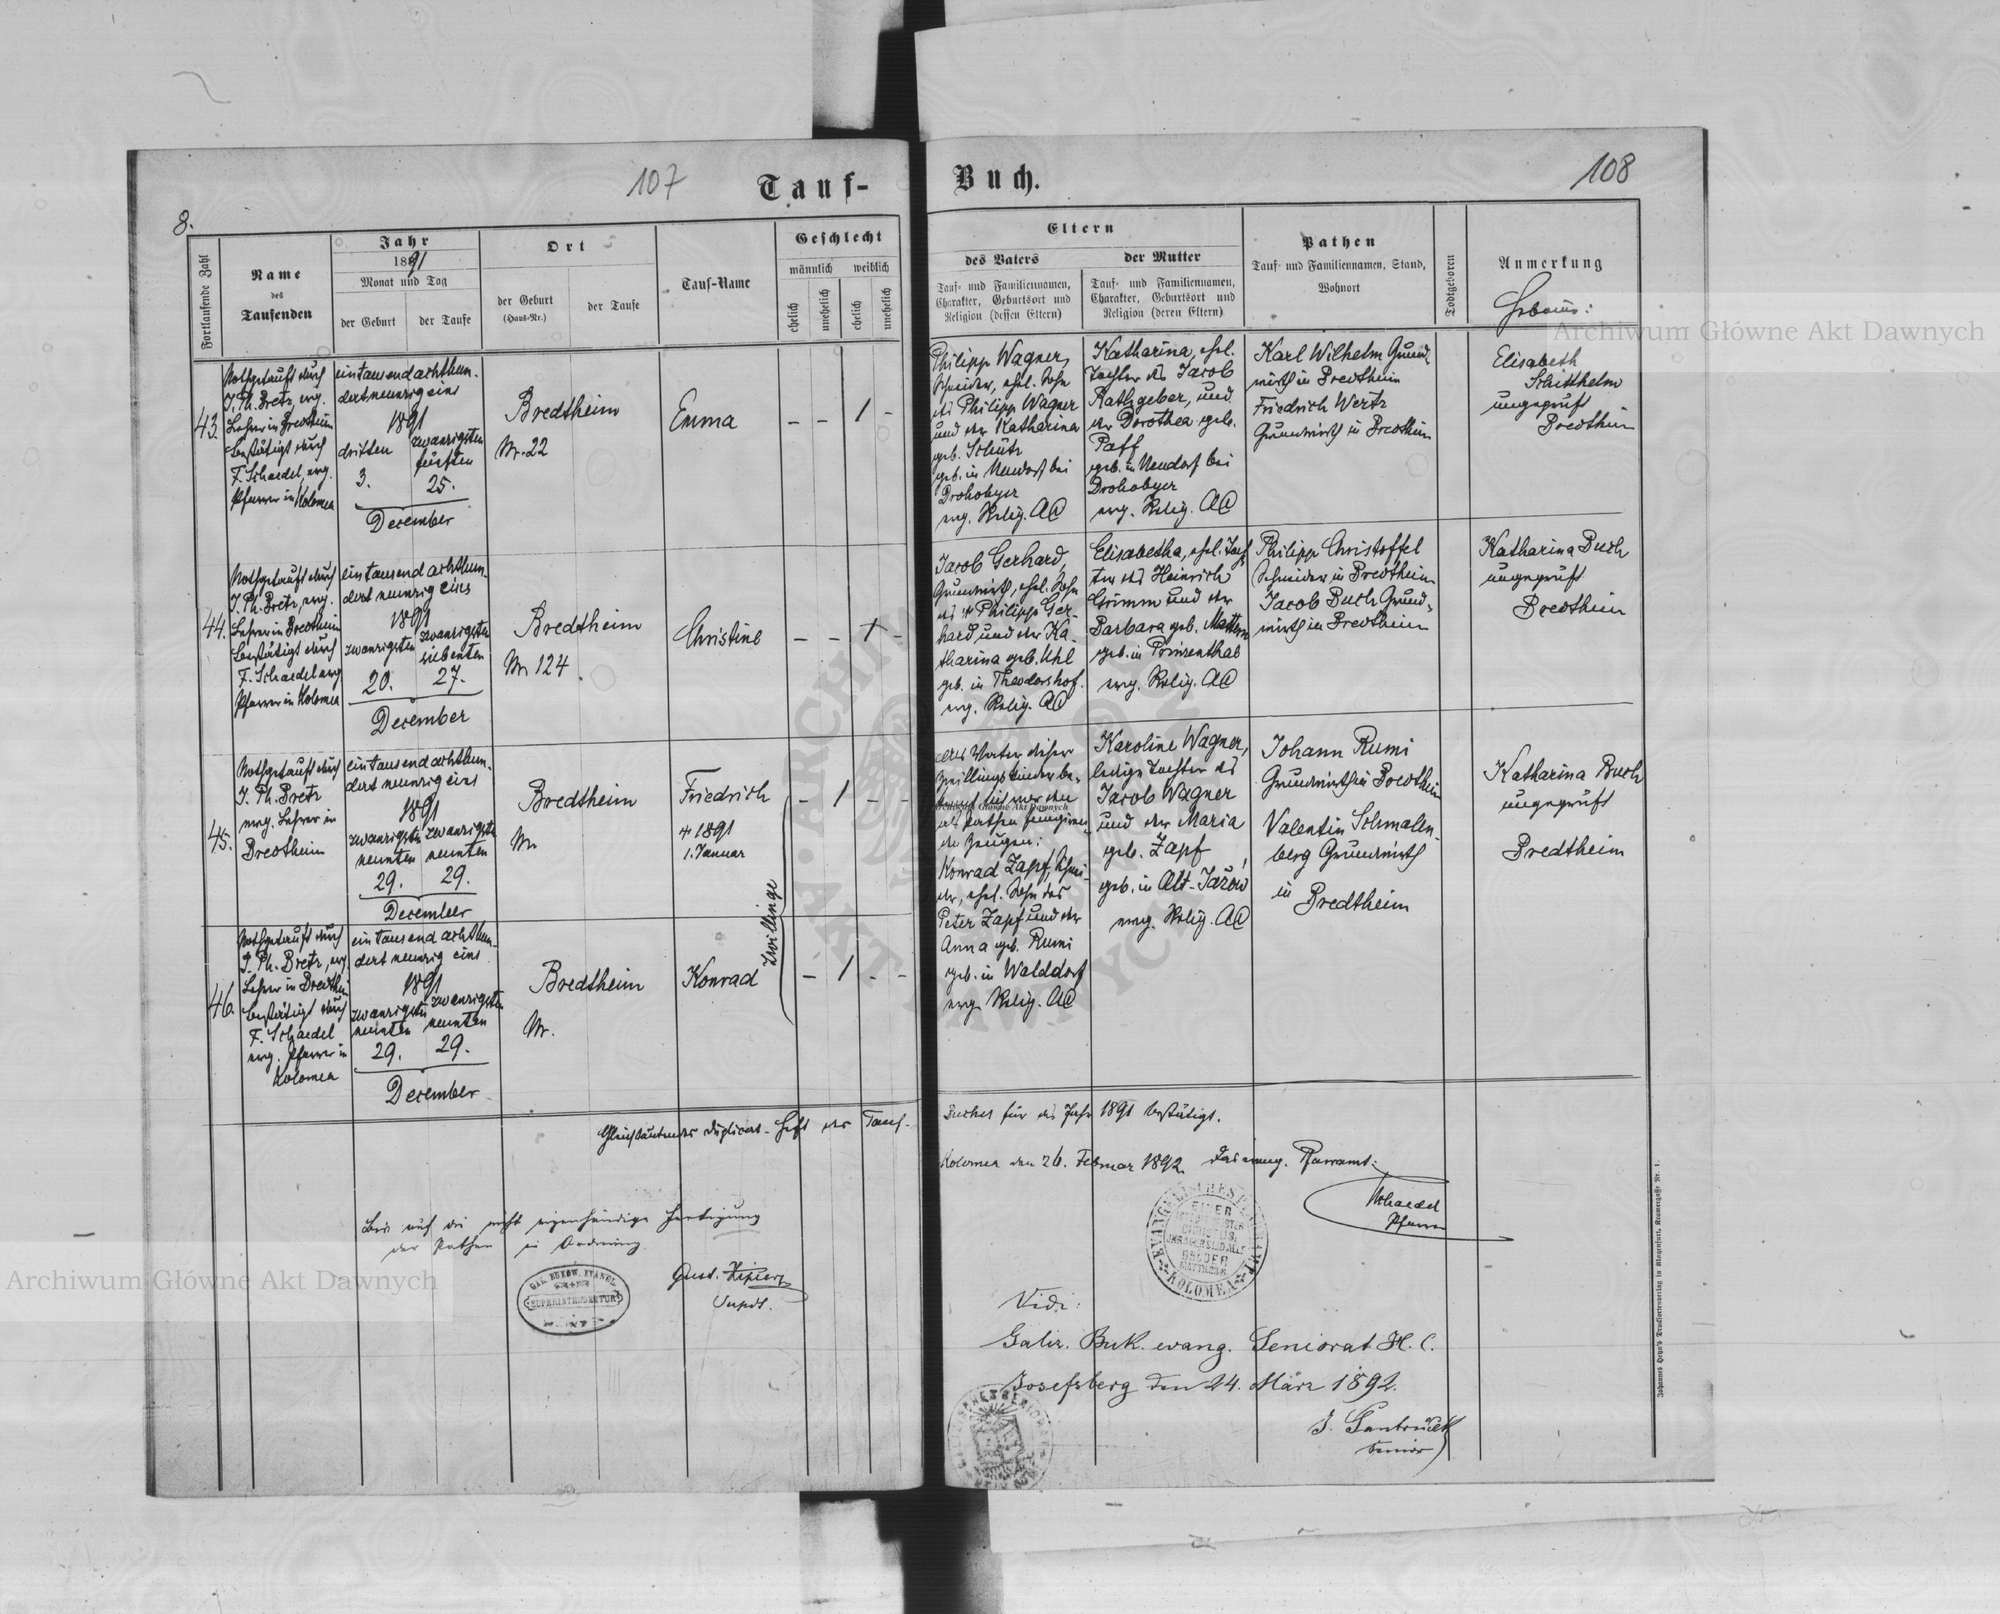 107
Tauf-
8.
Fortlaufende Zahl
Name
des
Taufenden
Jahr
1891
Monat und Tag
der Geburt
der Taufe
Ort
der Geburt
(Haus-Nr.)
der Taufe
Tauf-Name
Geschlecht
männlich
weiblich
ehelich
unehelich
ehelich
unehelich
43.
Nothgetauft durch
J. Ph. Bretz, evg.
Lehrer in Bredtheim
bestätigt durch
F. Schaedel, evg.
Pfarrer in Kolomea
ein tausend achthun-
dert neunzig eins
1891
dritten
zwanzigsten
fünften
3.
25.
December
Bredtheim
Nr. 22
Emma
– – 1 -
44.
Nothgetauft durch
J. Ph. Bretz, evg.
Lehrer in Bredtheim
bestätigt durch
F. Schaedel evg
Pfarrer in Kolomea
ein tausend achthun-
dert neunzig eins
1891
zwanzigsten
zwanzigsten
siebenten
20.
27.
December
Bredtheim
Nr. 124
Christine
– – 1 -
45.
Nothgetauft durch
J. Ph. Bretz
evg. Lehrer in
Bredtheim
ein tausend achthun-
dert neunzig eins
1891
zwanzigsten
neunten
zwanzigsten
neunten
29.
29.
December
Bredtheim
Nr.
Friedrich
+ 1891
1. Januar
- 1 - -
Zwillinge
46.
Nothgetauft durch
J. Ph. Bretz, evg
Lehrer in Bredthei
bestätigt durch
F. Schaedel
evg. Pfarrer in
Kolomea
ein tausend achthun-
dert neunzig eins
1891
zwanzigsten
neunten
zwanzigsten
neunten
29.
29.
December
Bredtheim
Nr.
Konrad
- 1 - -
Gleichlautendes Duplicat-Heft des Tauf-
Bis auf die nicht eigenhändige Fertigung
der Pathen in Ordnung.
GAL. BUKOW. EVANGL.
SUPERINTENDENTUR
Supdt.
Buch.
108
Eltern
des Vaters
Tauf- und Familiennamen,
Charakter, Geburtsort und
Religion (dessen Eltern)
der Mutter
Tauf- und Familiennamen,
Charakter, Geburtsort und
Religion (deren Eltern)
Pathen
Tauf- und Familiennamen, Stand,
Wohnort
Todtgeboren
Anmerkung
Philipp Wagner,
Schneider, ehel. Sohn
des Philipp Wagner
und der Katharina
geb. Schütz
geb. in Neudorf bei
Drohobycz
evg. Relig. AC
Katharina, ehel.
Tochter des Jacob
Rathgeber, und
der Dorothea geb.
Paff
geb. in Neudorf bei
Drohobycz
evg. Relig. AC
Karl Wilhelm Grund-
wirth in Bredtheim
Friedrich Wertz
Grundwirth in Bredtheim
Elisabeth
Schitthelm
ungeprüft
Bredtheim
Jacob Gerhard,
Grundwirth, ehel. Sohn
des + Philipp Ger-
hard und der Ka-
tharina geb. Uhl
geb. in Theodorshof.
evg. Relig. AC
Elisabetha, ehel. Toch-
ter des Heinrich
Grimm und der
Barbara geb. Mattern
geb. in Prinzenthal
evg. Relig. AC
Philipp Christoffel
Schneider in Bredtheim
Jacob Buch Grund-
wirth in Bredtheim
Katharina Buch
ungeprüft
Bredtheim
Als Vater dieser
Zwillingskinder be-
kennt sich vor den
als Pathen fungiren-
den Zeugen:
Konrad Zapf, Schnei-
der, ehel. Sohn des
Peter Zapf und der
Anna geb. Rumi
geb. in Walddorf
evg. Relig. AC
Karoline Wagner,
ledige Tochter des
Jacob Wagner
und der Maria
geb. Zapf,
geb. in Alt-Jażów
evg. Relig. AC
Johann Rumi
Grundwirth in Bredtheim
Valentin Schmalen-
berg Grundwirth
in
Bredtheim
Katharina Buch
ungeprüft
Bredtheim
Buches für das Jahr 1891 bestätigt.
Kolomea den 26. Februar 1892. Das evang. Pfarramt:
Schaedel
Pfarrer
KOLOMEA
Vidi:
Galiz. Buk. evang. Seniorat H. C.
Josefsberg den 24. März 1892.
Senior
Johannes Heyn's Drucksortenverlag in Klagenfurt, Kramergasse Nr. 1.
Archiwum Główne Akt Dawnych
Archiwum Główne Akt Dawnych
Archiwum Główne Akt Dawnych